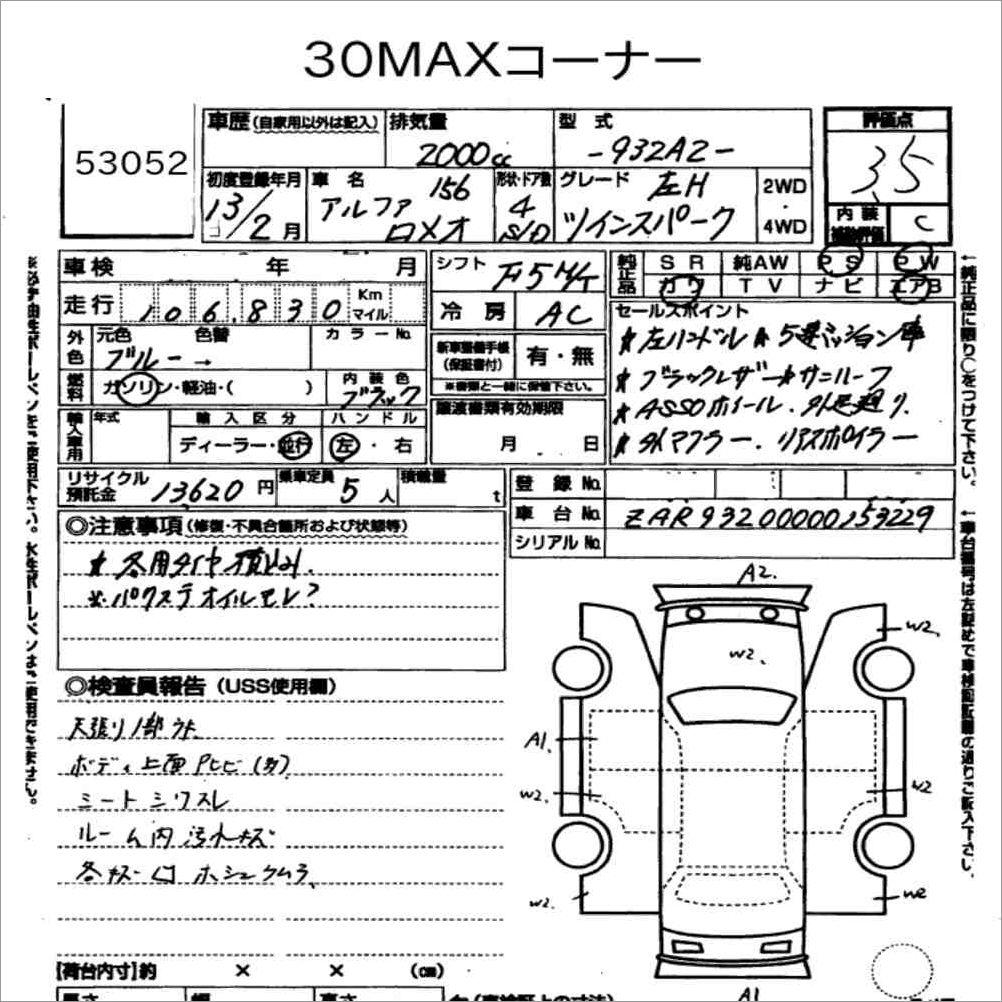 30MAXコーナー
53052
車歴(自家用以外は記入)
排気量
2000cc
型式
-932A2-
評価点
3.5
内装
補助評価
C
初度登録年月
13/2月
車名
アルファ
ロメオ
156
形状・ドア数
4
S/D
グレード
左H
ツインスパーク
2WD
・
4WD
車検 年 月
走行 106,830 Km
マイル
外色
元色 色替 カラーNo.
ブルー →
燃料
ガソリン・軽油・( )
内装色
ブラック
輸入車用
年式
輸入区分
ディーラー・並行
ハンドル
左・右
シフト
F5M/T
冷房
AC
新車整備手帳
(保証書付)
有・無
※書類と一緒に保管下さい。
譲渡書類有効期限
月 日
純正品
SR 純AW PS PW
カワ TV ナビ エアB
セールスポイント
★左ハンドル ★5速ミッション車
★ブラックレザー ★サンルーフ
★ASSOホイール、外足廻り
★外マフラー、リアスポイラー
リサイクル
預託金
13620円
乗車定員
5人
積載量
t
登録No.
車台No.
ZAR93200000153229
シリアルNo.
◎注意事項(修復・不具合箇所および状態等)
★冬用タイヤ積込み.
※パワステオイルモレ?
◎検査員報告(USS使用欄)
天張り1部ウキ
ボディ上面Pヒビ(多)
シートシワスレ
ルーム内汚れキズ
各キズ・凹 ホシュウムラ
A2.
W2.
W2.
A1.
W2.
W2
W2.
W2
A1
【荷台内寸】約 × × (cm)
長さ 幅 高さ
↑純正品に限り○をつけて下さい。
↑車台番号は左詰めで車検証記載の通りご記入下さい。